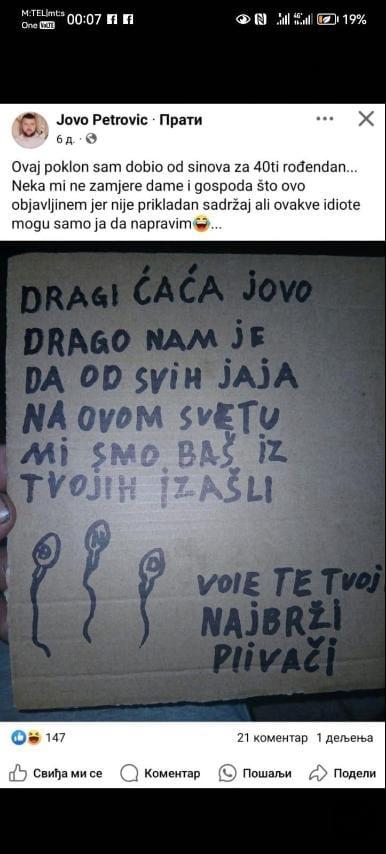 M:TEL|mt:s
One VoLTE 00:07 19%
Jovo Petrovic · Прати
6 д. ·
Ovaj poklon sam dobio od sinova za 40ti rođendan...
Neka mi ne zamjere dame i gospoda što ovo
objavljinem jer nije prikladan sadržaj ali ovakve idiote
mogu samo ja da napravim😂...
DRAGI ĆAĆA JOVO
DRAGO NAM JE
DA OD SVIH JAJA
NA OVOM SVETU
MI SMO BAŠ IZ
TVOJIH IZAŠLI
VOlE TE TVOJ
NAJBRŽI
PlIVAČI
147
21 коментар 1 дељења
Свиђа ми се Коментар Пошаљи Подели